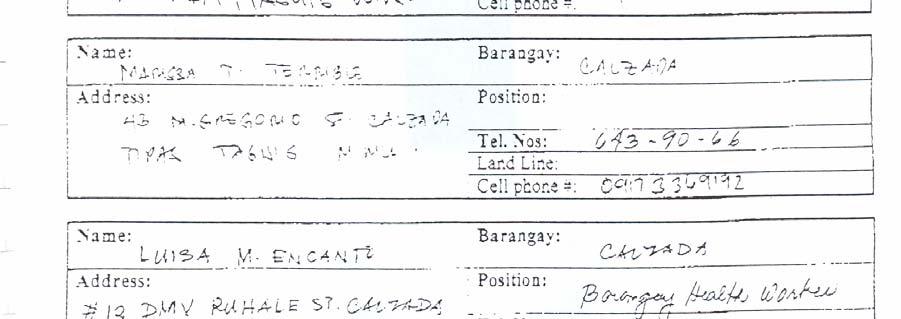 Cell phone #:
Name: MARISSA T. TERRIBLE Barangay: CALZADA
Address: Position:
43 M. GREGORIO ST. CALZADA
Tel. Nos: 643-90-66
TIPAS TAGUIG M.
Land Line:
Cell phone #: 09173369192
Name: LUISA M. ENCANTO Barangay: CALZADA
Address: Position: Barangay Health Worker
#12 DMV RUHALE ST. CALZADA